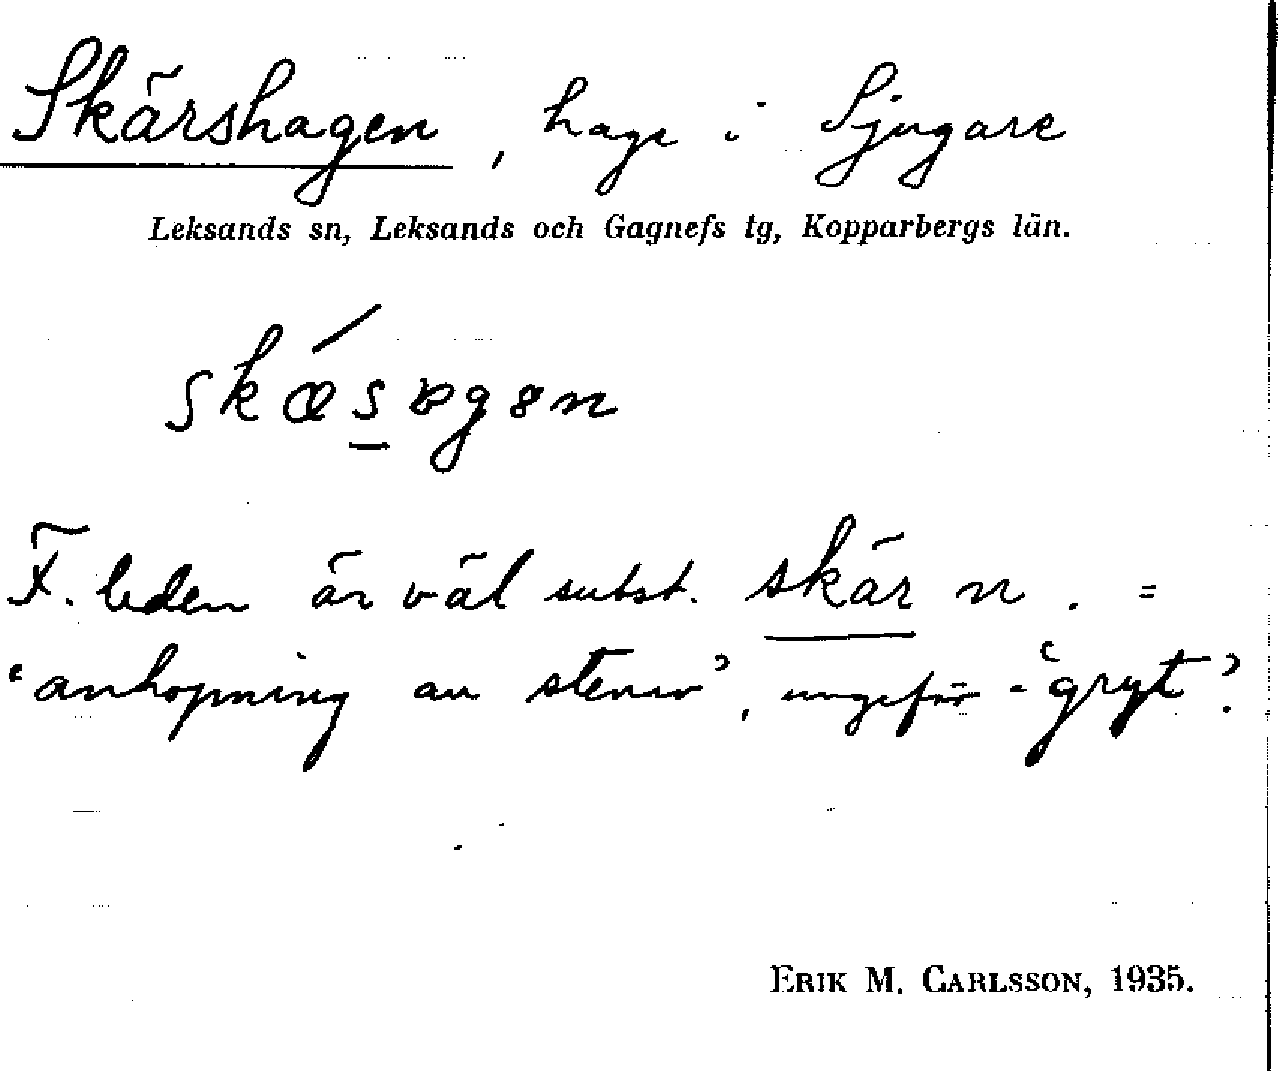 Skärshagen, hage i Sjugare
Leksands sn, Leksands och Gagnefs tg, Kopparbergs län.
F. leden är väl subst. skär n. =
'anhopning av stenar', ungefär = 'gryt'?
ERIK M. CARLSSON, 1935.